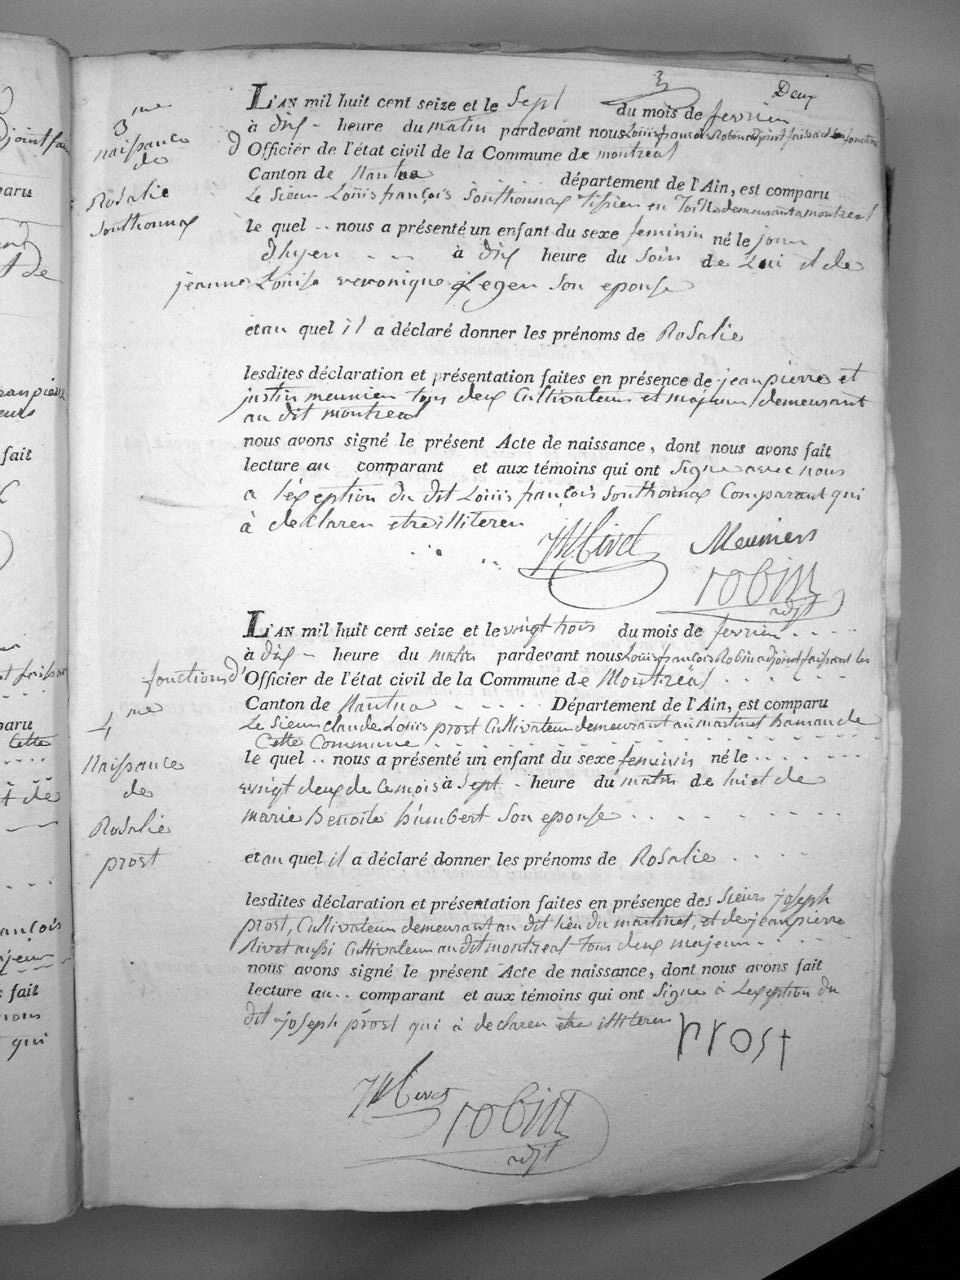 3
Deux
3me
naissance
de
Rosalie
Sonthonnax
L'AN mil huit cent seize et le Sept du mois de fevrier
à dix heure du matin pardevant nous Louis françois Robin adjoint faisant les fonctions
d Officier de l'état civil de la Commune de montreal
Canton de Nantua département de l'Ain, est comparu
Le Sieur Louis françois Sonthonnax tissier en Toille demeurant a montreal
le quel nous a présenté un enfant du sexe feminin né le jour
dhyer à dix heure du Soir de Lui et de
jeanne Louise veronique Leger Son epouse
et au quel il a déclaré donner les prénoms de Rosalie
lesdites déclaration et présentation faites en présence de jean pierre et
justin meunier tous deux Cultivateurs et majeurs demeurant
au dit montreal
nous avons signé le présent Acte de naissance, dont nous avons fait
lecture au comparant et aux témoins qui ont Signe avec nous
a l'éxception du dit Louis françois Sonthonnax Comparant qui
à declarer etre illiterer
Meuniers
robin
adjt
L'AN mil huit cent seize et le vingt trois du mois de fevrier
à dix heure du matin pardevant nous Louis françois Robin adjoint faisant les
fonctions d' Officier de l'état civil de la Commune de Montréal
4me
Naissance
de
Rosalie
prost
Canton de Nantua Département de l'Ain, est comparu
Le Sieur Claude Louis prost Cultivateur demeurant au martinet hamau de
Cette Commune
le quel nous a présenté un enfant du sexe feminin né le
vingt deux de ce mois à Sept heure du matin de lui et de
marie Benoite humbert Son epouse
et au quel il a déclaré donner les prénoms de Rosalie
lesdites déclaration et présentation faites en présence des Sieurs joseph
prost, Cultivateur demeurant au dit lieu du martinet, et de jean pierre
Rivet aussi Cultivateur au dit montreal tous deux majeur
nous avons signé le présent Acte de naissance, dont nous avons fait
lecture au comparant et aux témoins qui ont Signe à L'exception du
dit joseph prost qui à declarer etre illiterer
prost
robin
adjt